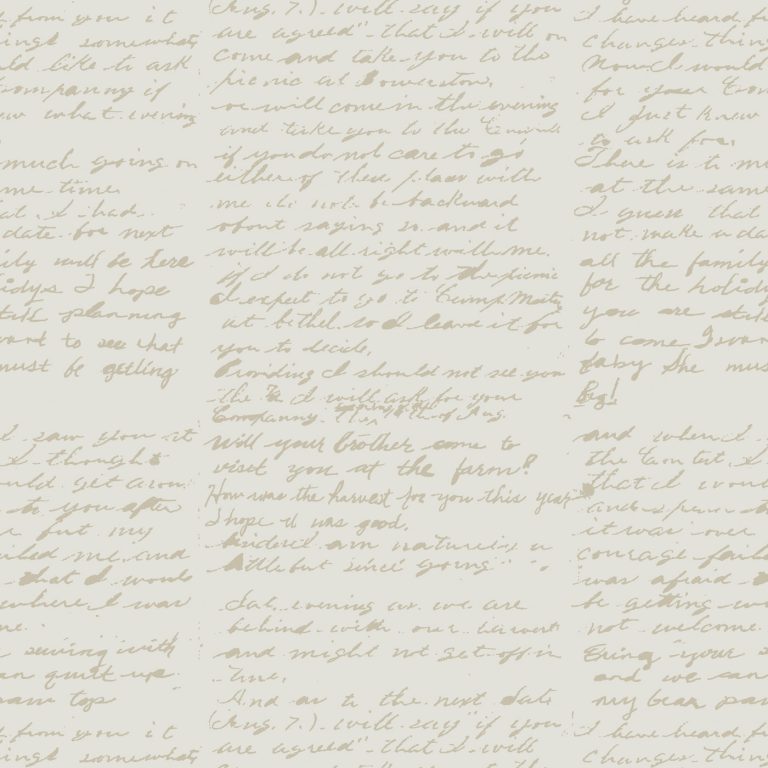 from you it
somewhat
like to ask
companny if
what evening
much going on
me time.
at I had
date for next
ily will be here
idys I hope
still planning
want to see that
must be getting
I saw you at
I thought
uld get a
to you after
but my
me and
that I would
where I was
me.
sewing with
an quilt up
top
from you it
somewhat
(Aug. 7.) will say "if you
are agreed" that I will on
come and take you to the
picnic at
or will come in the evening
and take you to the
if you do not care to go
either of these places with
me do not be backward
about saying so and it
will be all right with me.
If I do not go to the picnic
I expect to go to Camp Meeting
at bethel. so I leave it for
you to decide.
Providing I should not see you
the I will ask for your
Companny. the of Aug.
Will your brother come to
visit you at the farm?
How was the harvest for you this year
I hope it was good.
am naturely a
little but since going
Sat. evening as we are
behind with our harvest
and might not get off in
time.
And as to the next date
(Aug. 7.) will say "if you
are agreed" that I will
I have heard fr
changes thing
Now I would
for your Com
I just knew
to ask for.
There is to mu
at the same
I guess that
not make a da
all the family
for the holidy
you are still
to come, I wan
baby She mus
big!
and when I
the Contest, I
that I would
it was over
courage fail
was afraid
be getting w
not welcome.
Bring your s
and we can
my bear paw
I have heard fr
changes thing